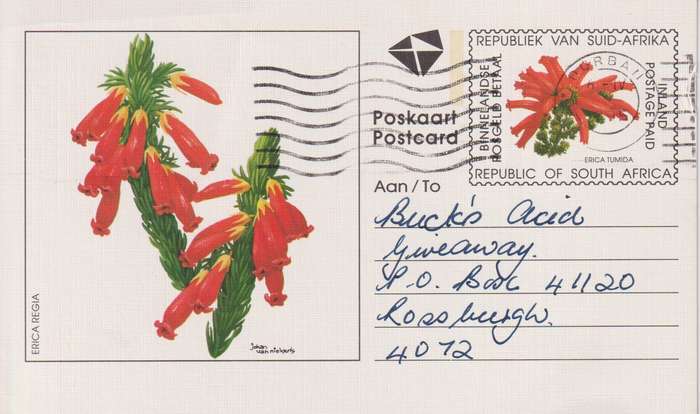 ERICA REGIA
Johan
van niekerk
Poskaart
Postcard
REPUBLIEK VAN SUID-AFRIKA
BINNELANDSE
POSGELD BETAAL
INLAND
POSTAGE PAID
ERICA TUMIDA
REPUBLIC OF SOUTH AFRICA
Aan / To
Buck's Acid
Giveaway.
P.O. Box 41120
Rossburgh.
4072